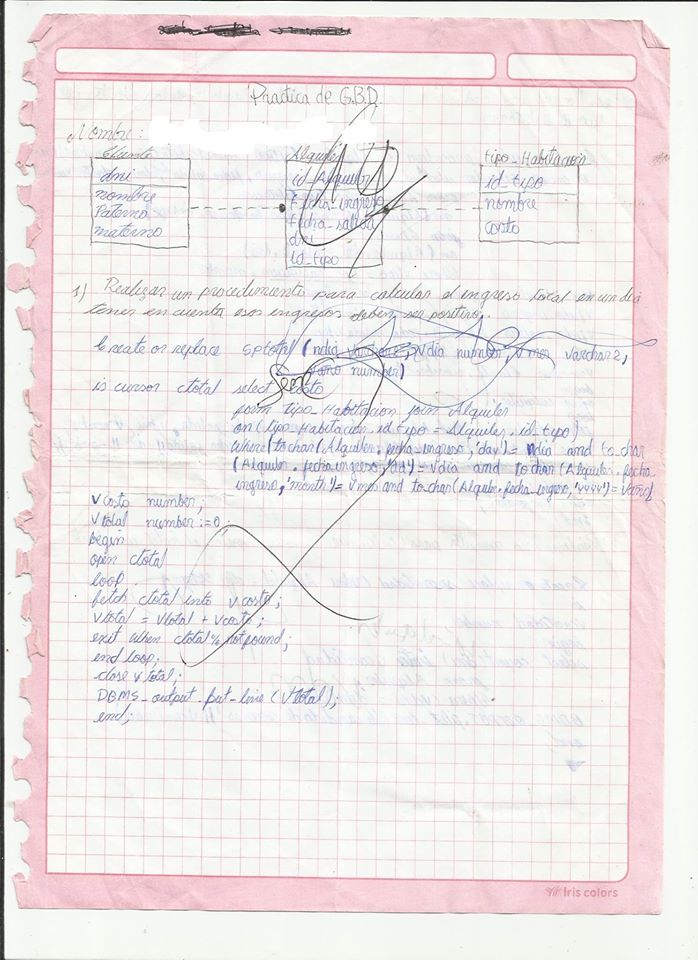 Practica de G.B.D.
Nombre:
Cliente
dni
nombre
Paterno
materno
Alquiler
id_Alquiler
fecha_ingreso
fecha_salida
dni
id_tipo
tipo_Habitacion
id_tipo
nombre
costo
1) Realizar un procedimiento para calcular el ingreso total en un dia
tener en cuenta esos ingresos deben ser positivo.
Create or replace sptotal (ndia varchar2, vdia number, vmes varchar2,
vano number)
is cursor ctotal select costo
form tipo_Habitacion join Alquiler
on (tipo_Habitacion.id_tipo = Alquiler.id_tipo)
Where (to char (Alquiler.fecha_ingreso, 'day') = ndia and to_char
(Alquiler.fecha_ingreso, 'dd') = vdia and to char (Alquiler.fecha_
ingreso, 'month') = vmes and to_char (Alquiler.fecha_ingreso, 'yyyy') = vaño)
v costo number;
vtotal number := 0;
begin
open ctotal
loop
fetch ctotal into vcosto;
vtotal = vtotal + vcosto;
exit when ctotal% notfound;
end loop;
close vtotal;
DBMS_output.put_line (vtotal);
end;
Iris colors